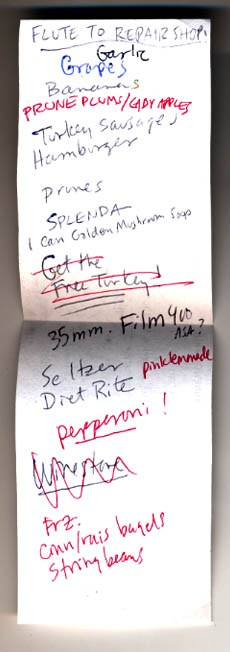 FLUTE TO REPAIR SHOP!
Garlic
Grapes
Bananas
PRUNE PLUMS/LADY APPLES
Turkey Sausages
Hamburger
prunes
SPLENDA
1 can Golden Mushroom Soup
Get the
Free Turkey!
35mm. Film 400
ASA?
Seltzer
pink lemonade
Diet Rite
pepperoni!
Frz.
cinn/rais bagels
string beans